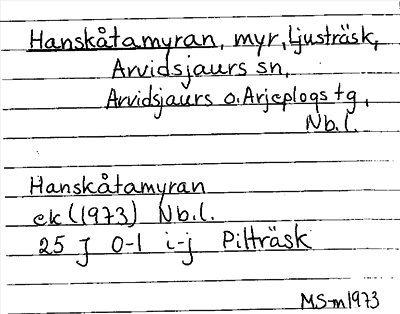 Hanskåtamyran, myr, Ljusträsk,
Arvidsjaurs sn,
Arvidsjaurs o. Arjeplogs tg,
Nb.l.
Hanskåtamyran
ek (1973) Nb.l.
25 J 0-1 i-j Pilträsk
MS-m 1973